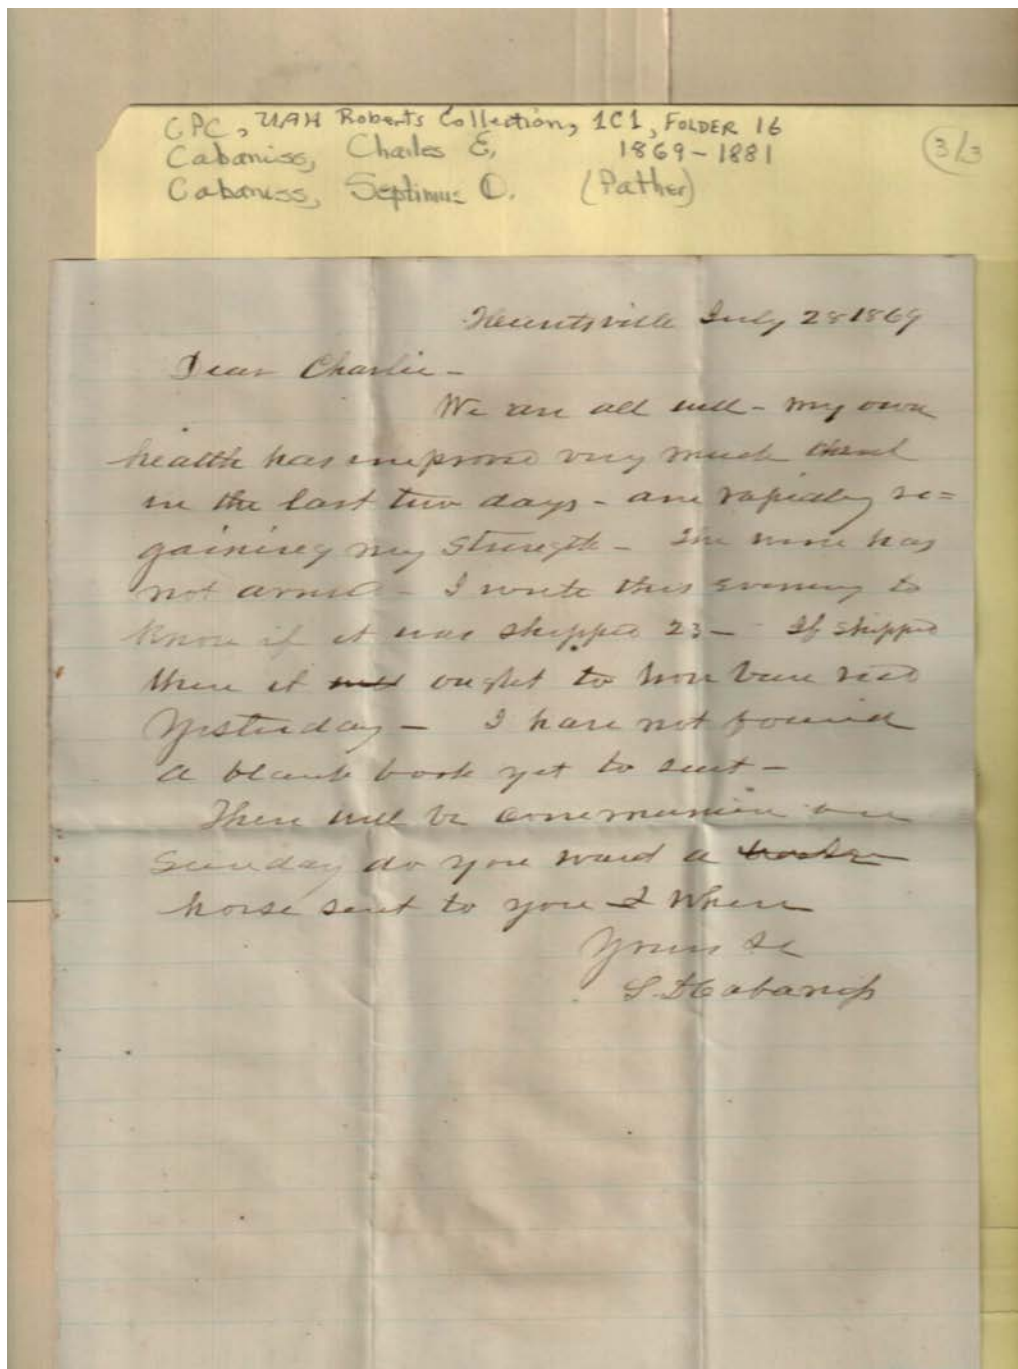 CPC, UAH Roberts Collection, 1C1, FOLDER 16
Cabaniss, Charles E, 1869-1881
3/3
Cabaniss, Septimus D. (Father)
Huntsville July 28 1869
Dear Charlie -
We are all well - my own
health has improve very much
in the last two days - am rapidly re=
gaining my strength - The wine has
not arrived - I write this evening to
know if it was shipped 23 - If shipped
then it ought to have been recd
yesterday - I have not found
a blank book yet to suit -
There will be communion on
Sunday do you want a
horse sent to you & When
Yours &c
S. D Cabaniss